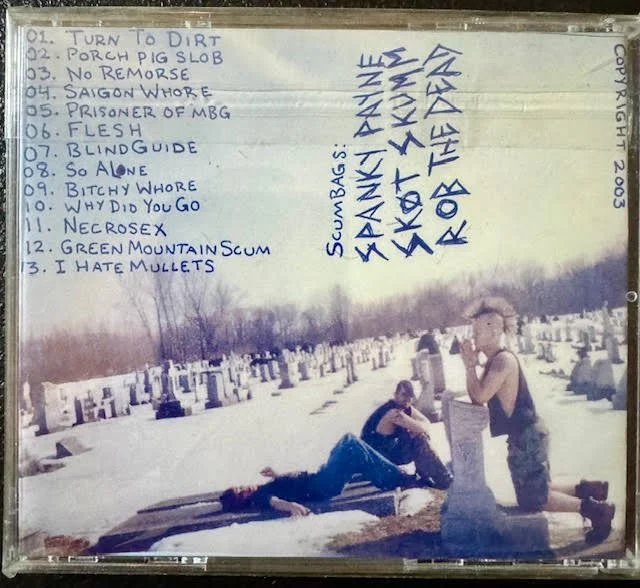 01. TURN TO DIRT
02. PORCH PIG SLOB
03. NO REMORSE
04. SAIGON WHORE
05. PRISONER OF MBG
06. FLESH
07. BLIND GUIDE
08. SO ALONE
09. BITCHY WHORE
10. WHY DID YOU GO
11. NECROSEX
12. GREEN MOUNTAIN SCUM
13. I HATE MULLETS
SCUMBAGS:
SPANKY PAYNE
SKØT SKUMM
ROB THE DEAD
COPYRIGHT 2003